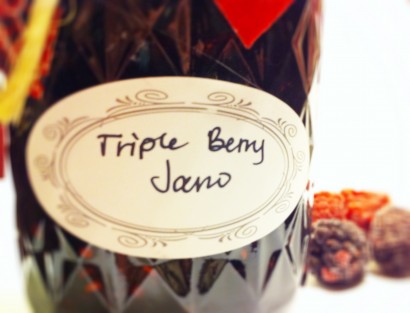 Triple Berry
Jam